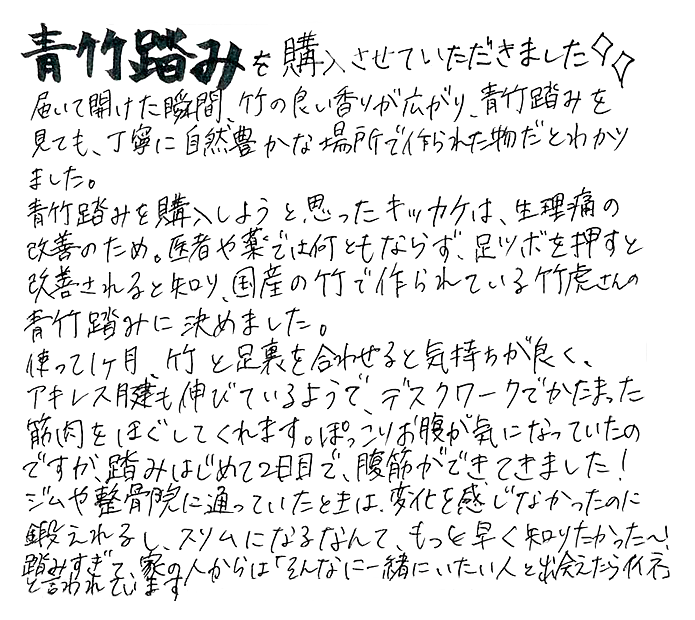 青竹踏みを購入させていただきました
届いて開けた瞬間、竹の良い香りが広がり、青竹踏みを
見ても、丁寧に自然豊かな場所で作られた物だとわかり
ました。
青竹踏みを購入しようと思ったキッカケは、生理痛の
改善のため。医者や薬では何ともならず、足ツボを押すと
改善されると知り、国産の竹で作られている竹虎さんの
青竹踏みに決めました。
使って1ヶ月、竹と足裏を合わせると気持ちが良く、
アキレス腱も伸びているようで、デスクワークでかたまった
筋肉をほぐしてくれます。ぽっこりお腹が気になっていたの
ですが、踏みはじめて2日目で、腹筋ができてきました!
ジムや整骨院に通っていたときは、変化を感じなかったのに
鍛えれるし、スリムになるなんて、もっと早く知りたかった〜!
踏みすぎて、家の人からは「そんなに一緒にいたい人と出会えたらイイネ」
と言われています